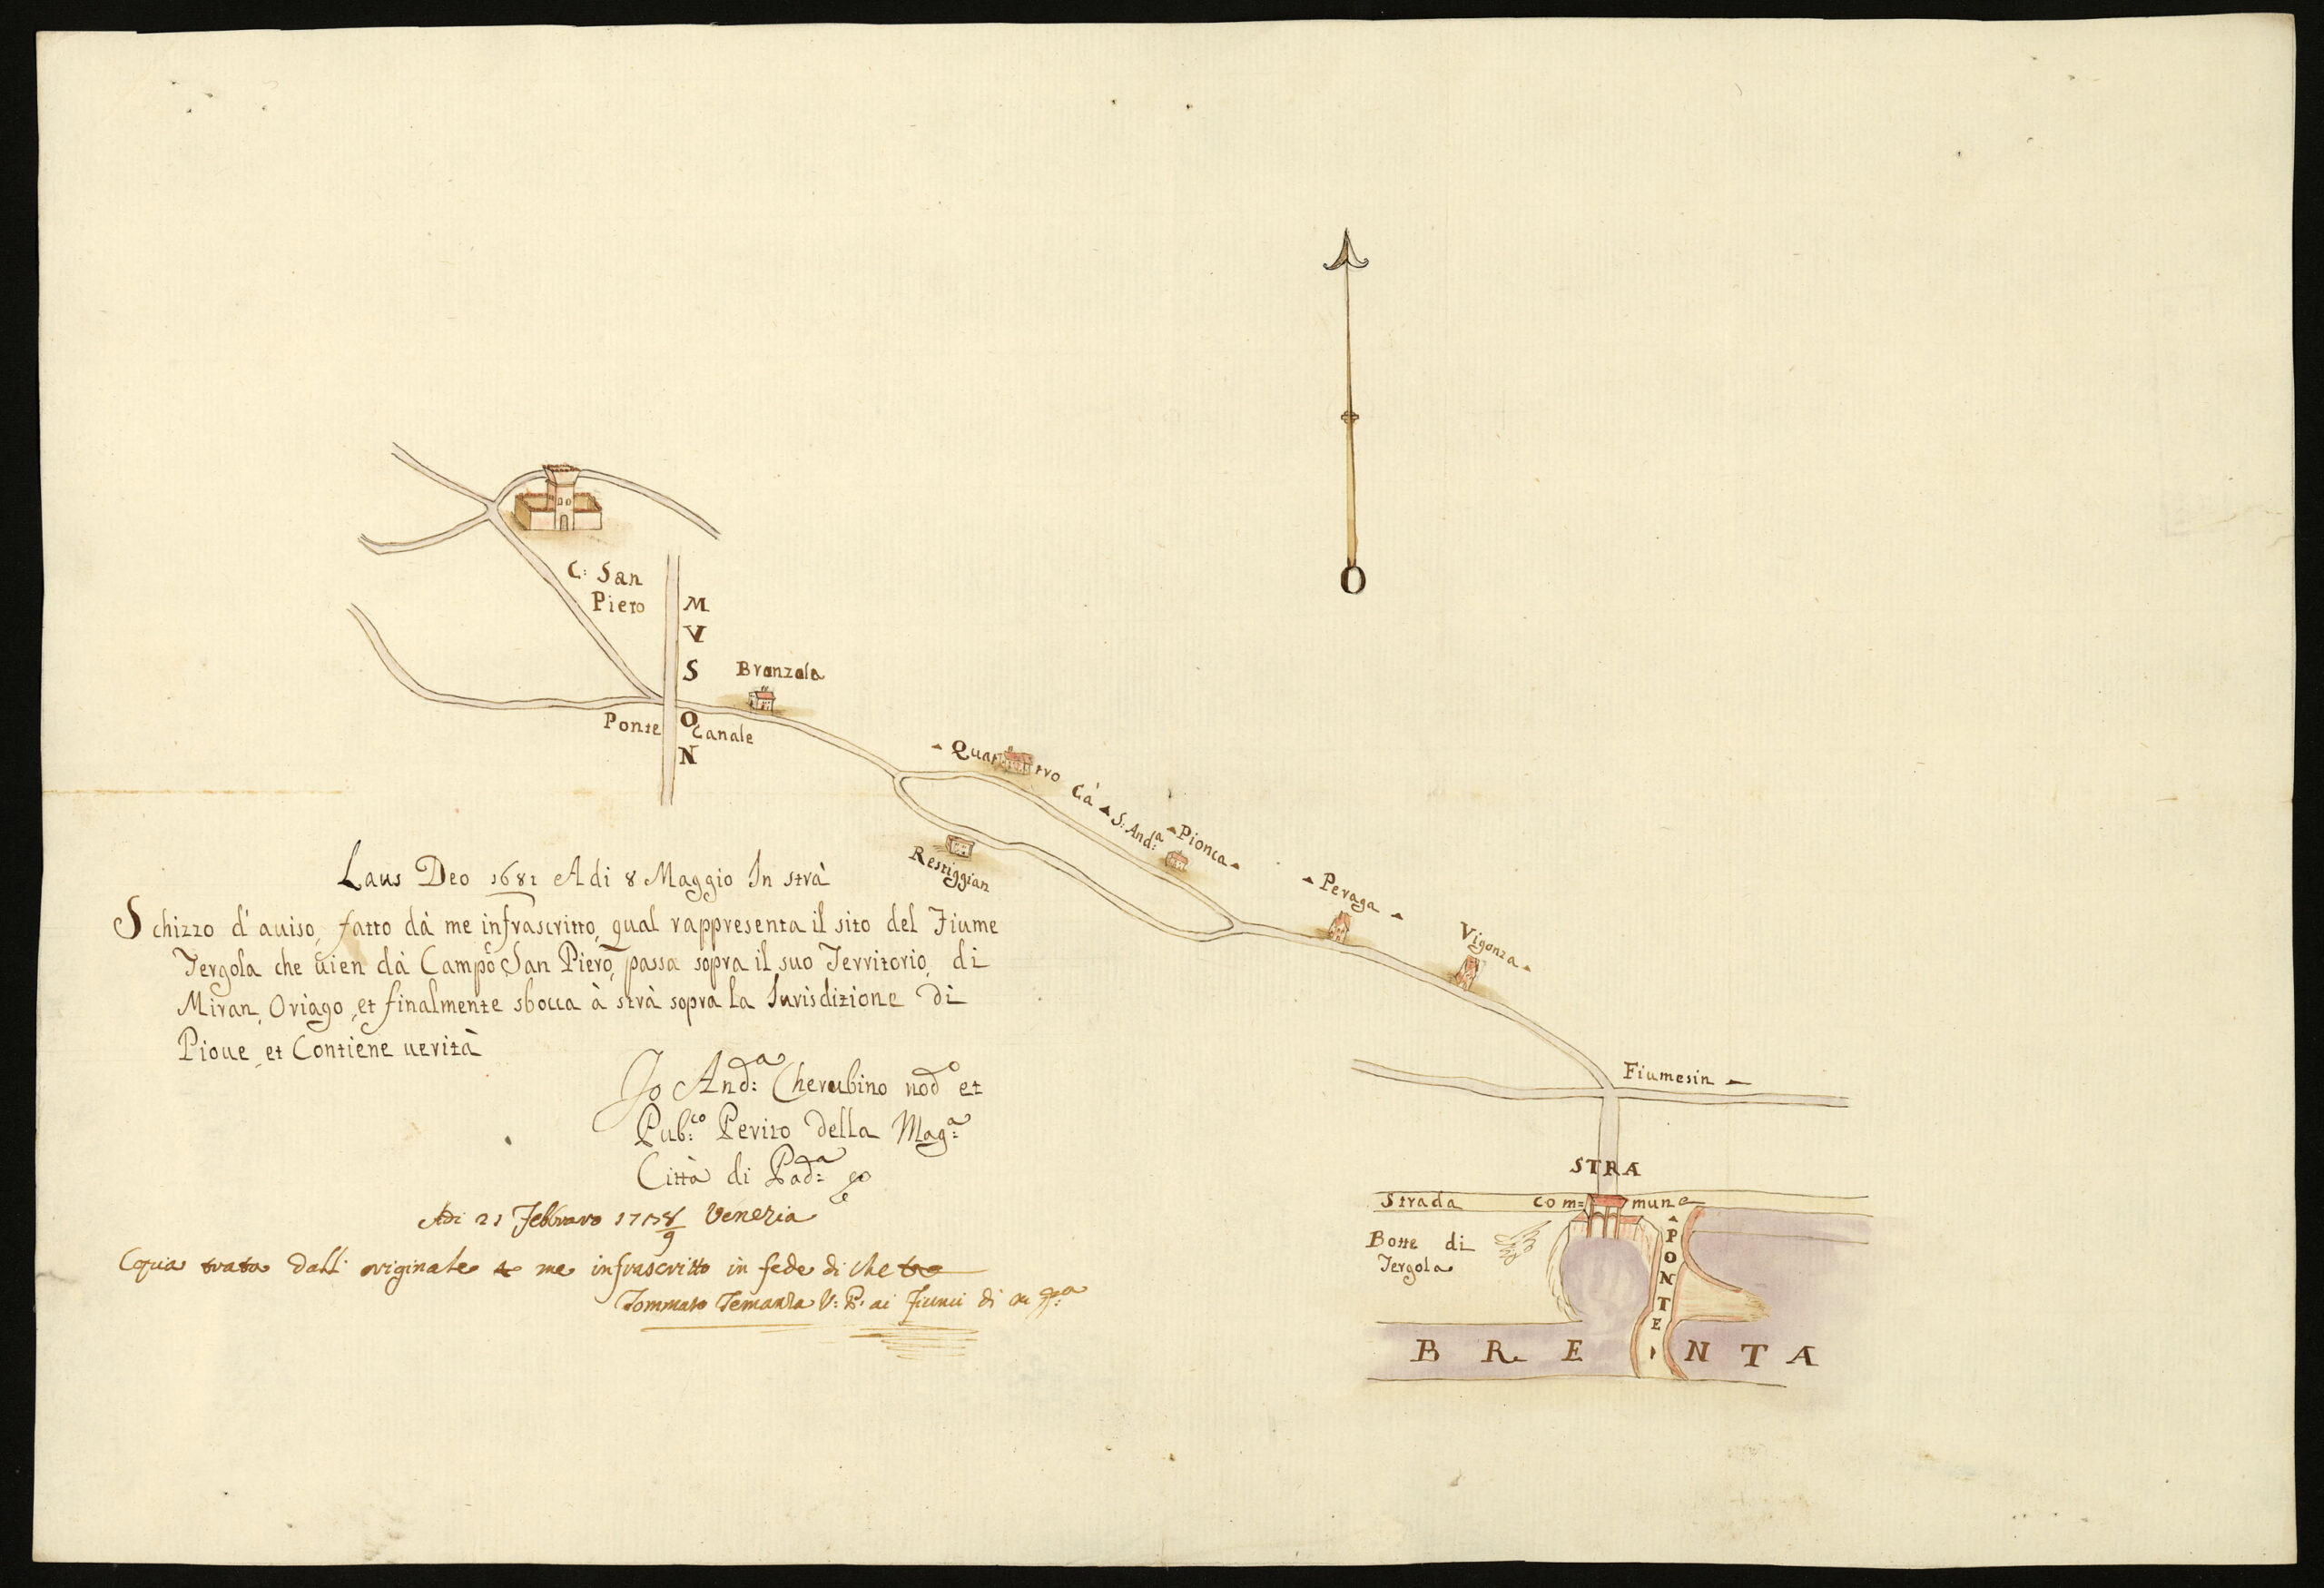 C: San
Piero
M
V
S
O
N
Branzola
Ponte Canale
Quar tvo
Cà
S: And:a
Pionca
Restiggian
Peraga
Vigonza
Fiumesin
STRA
Strada Com= mune
Botte di
Tergola
PONTE
BRENTA
Laus Deo 1681 Adi 8 Maggio In strà
Schizzo d'auiso, fatto dà me infrascritto, qual rappresenta il sito del Fiume
Tergola che uien dà Campo San Piero, passa sopra il suo Territorio, di
Miran, Oriago, et finalmente sbocca à strà sopra la Iurisditione di
Pioue, et Contiene uerità
Io And:a Cherubino nod:o et
Pub:co Perito della Mag:a
Città di Pad:a
Adi 21 Febbraro 1758/9 Venezia
Copia trata dall' originale me infrascritto in fede di che
Tommaso Temanza V: P: ai Fiumi di